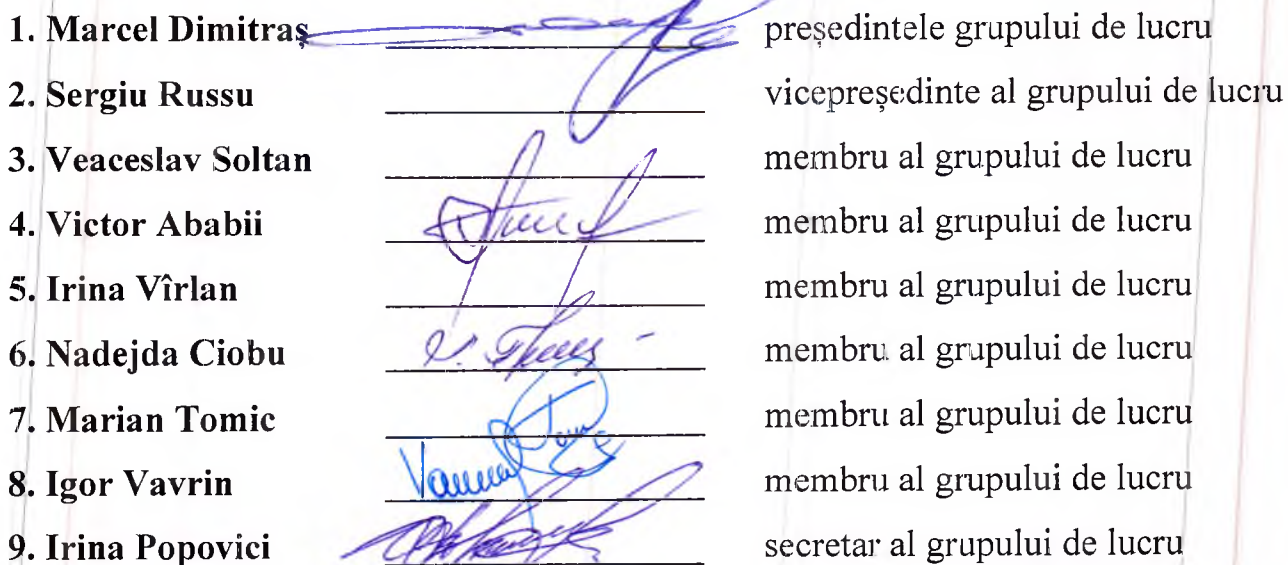 1. Marcel Dimitraș președintele grupului de lucru
2. Sergiu Russu vicepreședinte al grupului de lucru
3. Veaceslav Soltan membru al grupului de lucru
4. Victor Ababii membru al grupului de lucru
5. Irina Vîrlan membru al grupului de lucru
6. Nadejda Ciobu membru al grupului de lucru
7. Marian Tomic membru al grupului de lucru
8. Igor Vavrin membru al grupului de lucru
9. Irina Popovici secretar al grupului de lucru